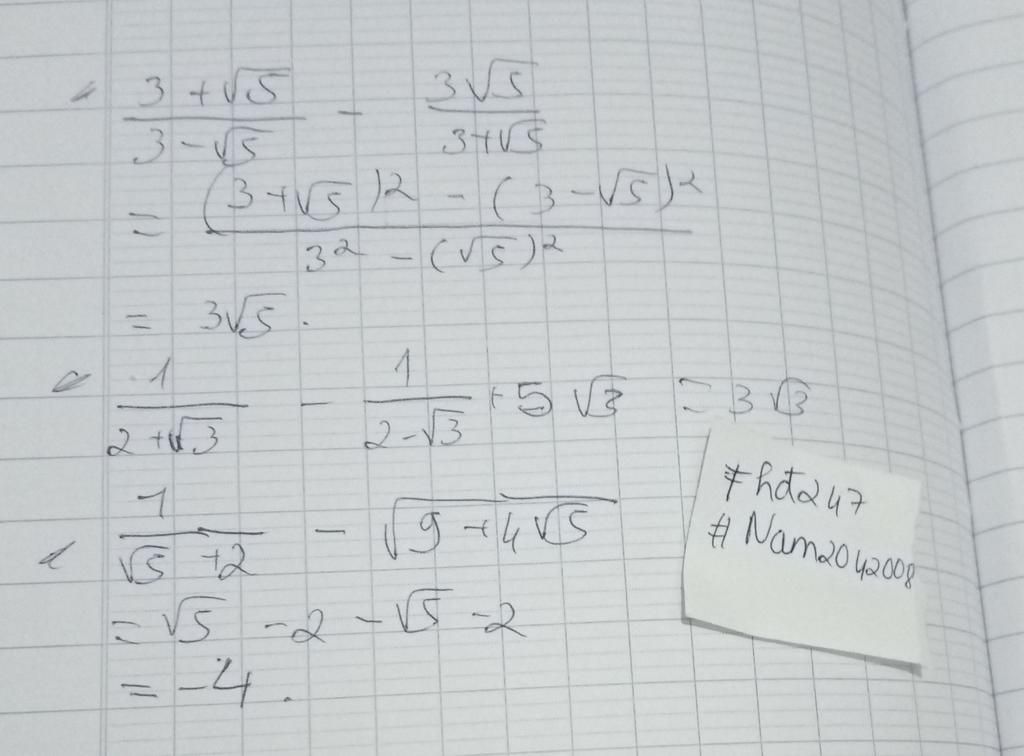 (3 + √5)/(3 - √5) - 3√5/(3 + √5)
= ((3 + √5)² - (3 - √5)²)/(3² - (√5)²)
= 3√5.
1/(2 + √3) - 1/(2 - √3) + 5√3 = 3√3
1/(√5 + 2) - √(9 + 4√5)
= √5 - 2 - √5 - 2
= -4.
#hđ247
#Nam2042008